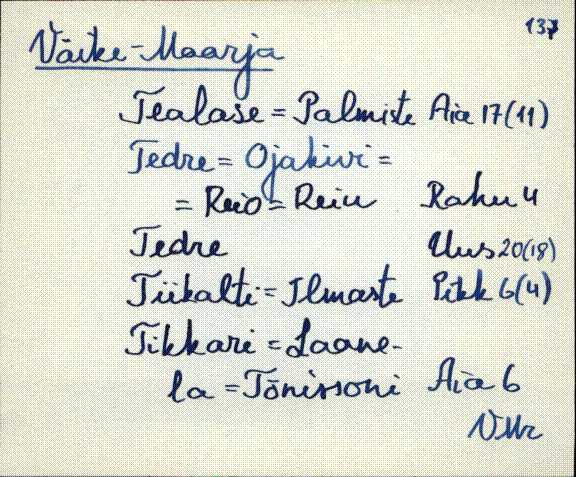 137
Väike-Maarja
Tealase = Palmiste Aia 17(11)
Tedre = Ojakivi =
= Reio = Reiu Rahu 4
Tedre Uus 20(18)
Tiikalti = Ilmaste Pikk 6(4)
Tikkari = Laane-
la = Tõnissoni Aia 6
VMr